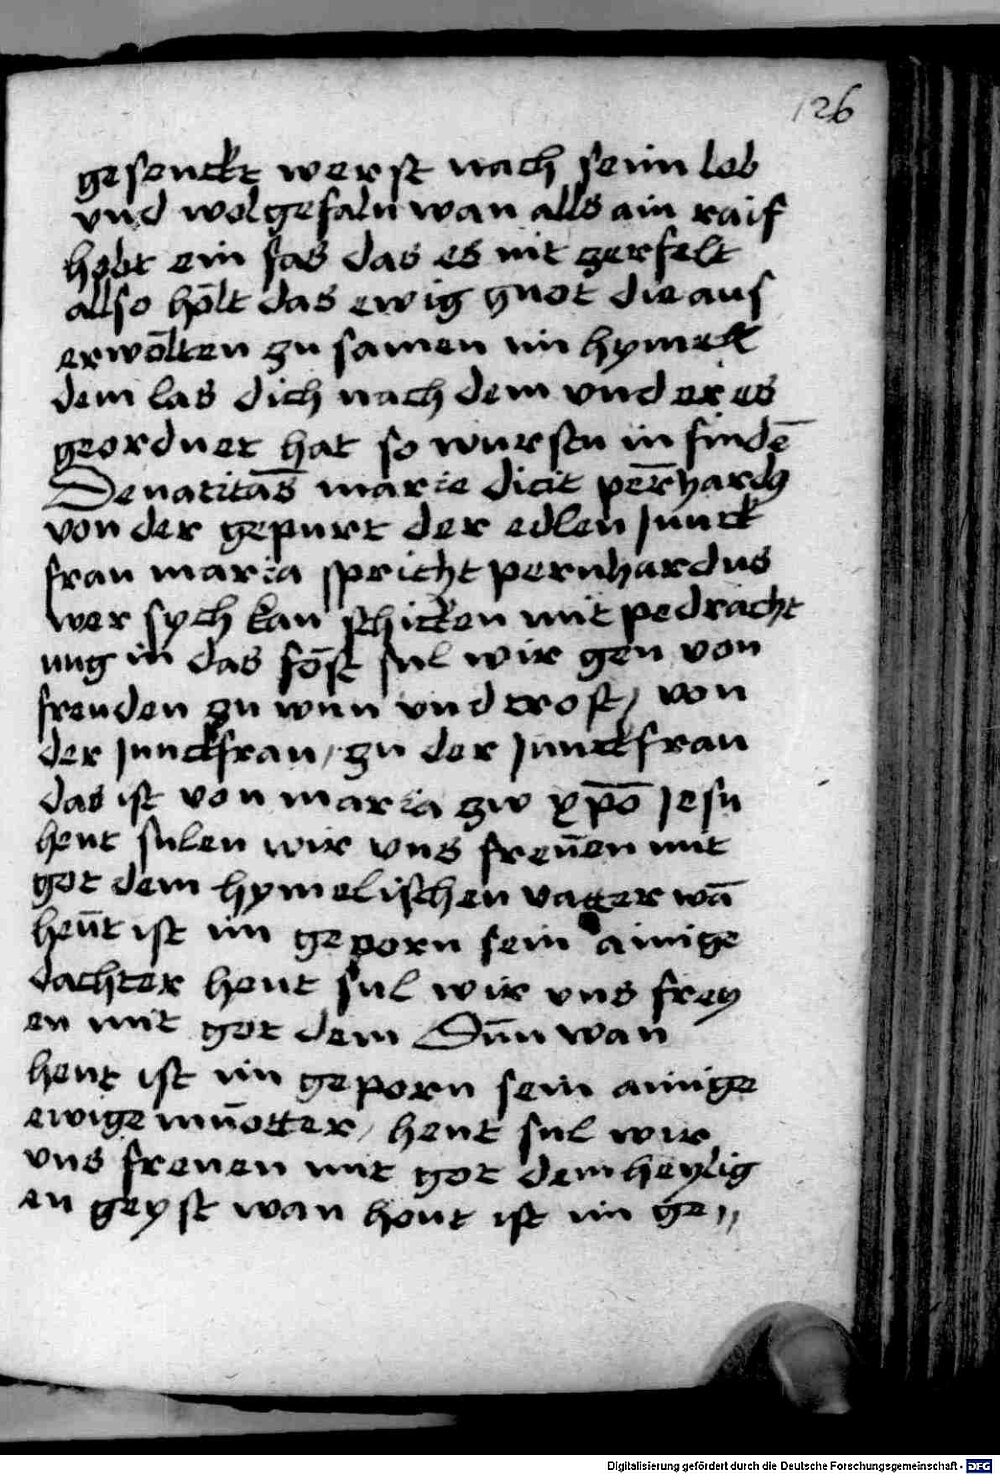 126
gesenckt werst nach seim lob
vnd wolgefaln wan alls ain raif
hebt ein fas das es nit zerfelt
allso hōlt das ewig guot die aus
erwōlten zu samen im hymell
dem las dich nach dem vnd er es
geordnet hat so wurstu in findē
De natitās marie dicit per̄hardꝰ
von der gepurt der edlen Junck
frau maria spricht pernhardus
wer sych kan schicken mit pedracht
ung in das fōst sul wir gen von
freuden zu wun vnd trost / von
der Junckfrau / zu der Junckfrau
das ist von maria zw xp̄o Jesu
heut sulen wir vns freūen mit
got dem hymelischen vatter wā
heūt ist im geporn sein ainige
dachter heut sul wir vns frey
en mit got dem Sūn wan
heut ist im geporn sein ainige
ewige mūotter / heut sul wir
vns freuen mit got dem heylig
en geyst wan heut ist im ge〃
Digitalisierung gefördert durch die Deutsche Forschungsgemeinschaft - DFG